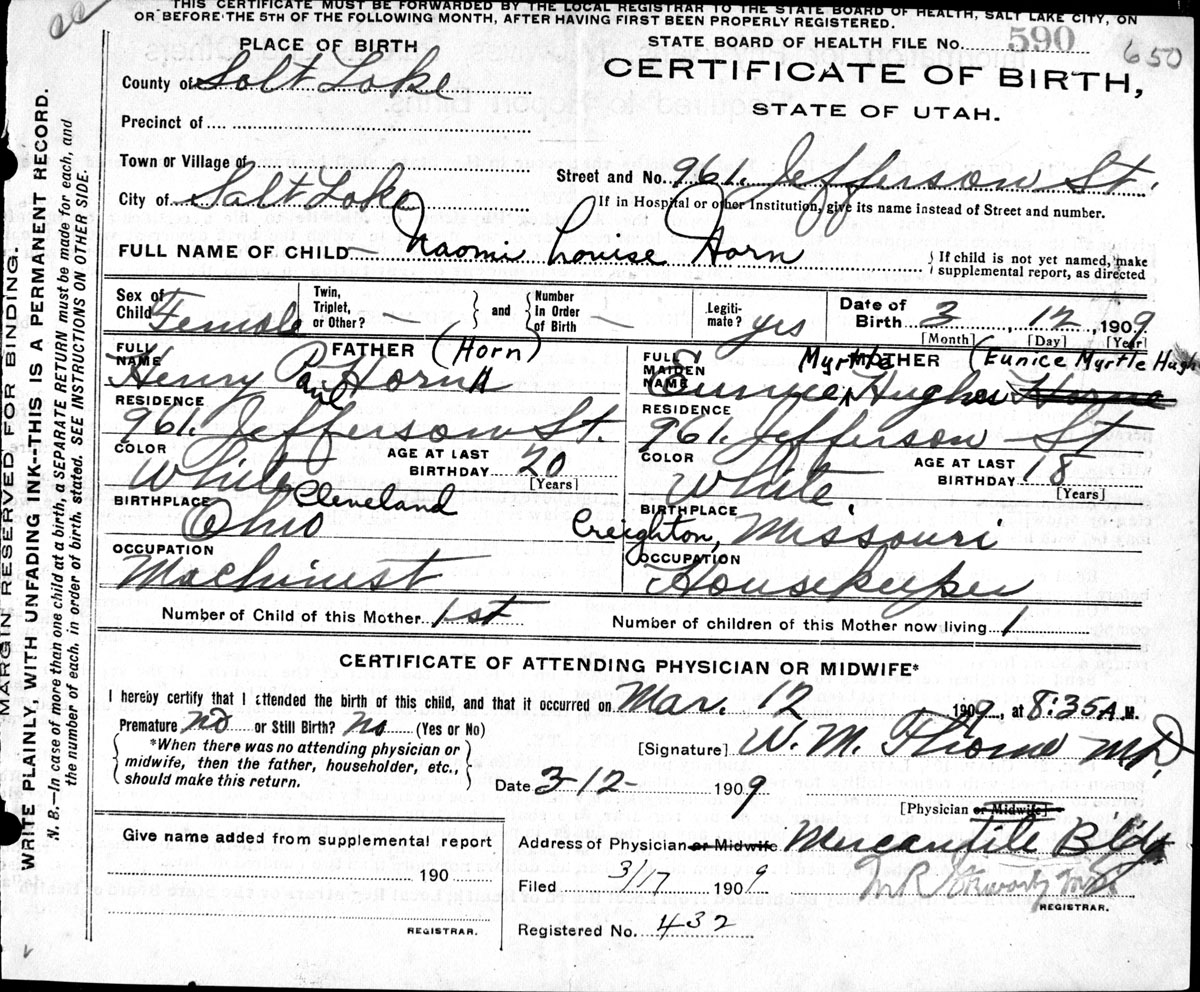 THIS CERTIFICATE MUST BE FORWARDED BY THE LOCAL REGISTRAR TO THE STATE BOARD OF HEALTH, SALT LAKE CITY, ON
OR BEFORE THE 5TH OF THE FOLLOWING MONTH, AFTER HAVING FIRST BEEN PROPERLY REGISTERED.
PLACE OF BIRTH
STATE BOARD OF HEALTH FILE No. 590 650
County of Salt Lake
CERTIFICATE OF BIRTH,
STATE OF UTAH.
Precinct of
Town or Village of
Street and No. 961. Jefferson St.
City of Salt Lake
If in Hospital or other Institution, give its name instead of Street and number.
FULL NAME OF CHILD Naomi Louise Horn
If child is not yet named, make
supplemental report, as directed
Sex of Child Female
Twin, Triplet, or Other? —
and
Number In Order of Birth —
Legiti-mate? yes
Date of Birth 3, 12, 1909
[Month] [Day] [Year]
FATHER (Horn)
FULL NAME Henry Paul Horn
MOTHER (Eunice Myrtle Hugh
FULL MAIDEN NAME Eunice Myrtle Hughes Horne
RESIDENCE
961. Jefferson St.
RESIDENCE
961. Jefferson St
COLOR White
AGE AT LAST BIRTHDAY 20 [Years]
COLOR White
AGE AT LAST BIRTHDAY 18 [Years]
BIRTHPLACE Cleveland
Ohio
BIRTHPLACE
Creighton, Missouri
OCCUPATION
Machinist
OCCUPATION
Housekeeper
Number of Child of this Mother 1st
Number of children of this Mother now living 1
CERTIFICATE OF ATTENDING PHYSICIAN OR MIDWIFE*
I hereby certify that I attended the birth of this child, and that it occurred on Mar. 12 1909, at 8:35 A.M.
Premature no or Still Birth? no (Yes or No)
*When there was no attending physician or
midwife, then the father, householder, etc.,
should make this return.
[Signature] W. M. Thome MD,
Date 3-12- 1909
[Physician or Midwife]
Give name added from supplemental report
190
REGISTRAR.
Address of Physician or Midwife Mercantile Bldg
Filed 3/17 1909
REGISTRAR.
Registered No. 432
MARGIN RESERVED FOR BINDING.
WRITE PLAINLY, WITH UNFADING INK--THIS IS A PERMANENT RECORD.
N. B.—In case of more than one child at a birth, a SEPARATE RETURN must be made for each, and
the number of each, in order of birth, stated. SEE INSTRUCTIONS ON OTHER SIDE.